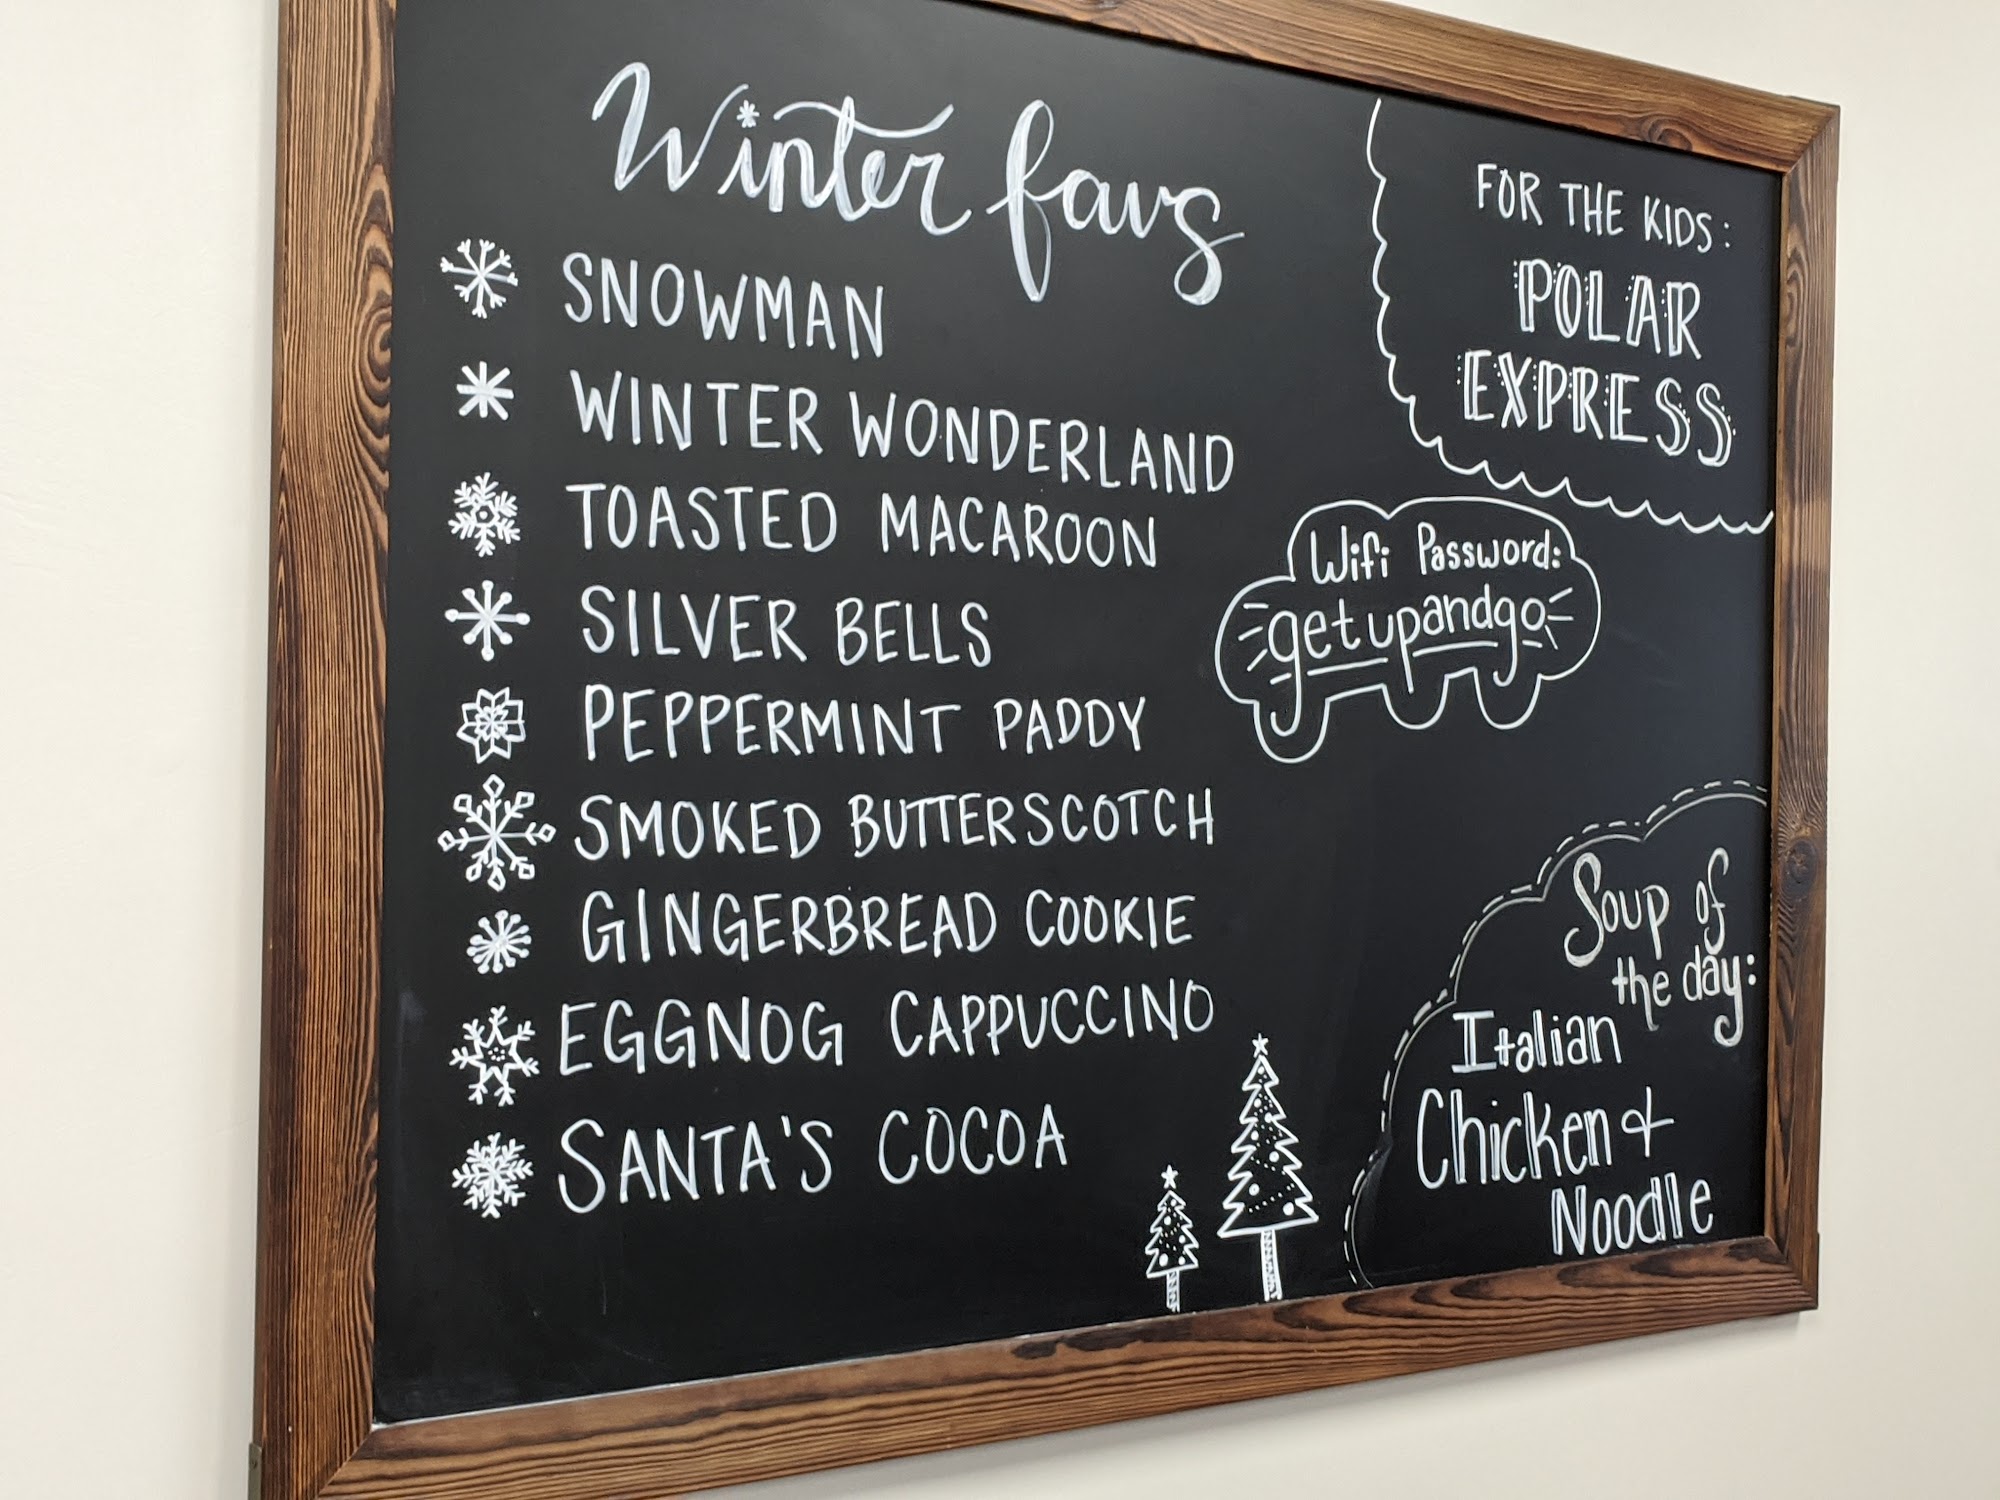 Winter favs
SNOWMAN
WINTER WONDERLAND
TOASTED MACAROON
SILVER BELLS
PEPPERMINT PADDY
SMOKED BUTTERSCOTCH
GINGERBREAD COOKIE
EGGNOG CAPPUCCINO
SANTA'S COCOA
FOR THE KIDS:
POLAR
EXPRESS
Wifi Password:
getupandgo
Soup of
the day:
Italian
Chicken &
Noodle